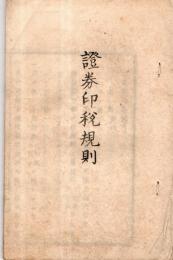 證券印稅規則